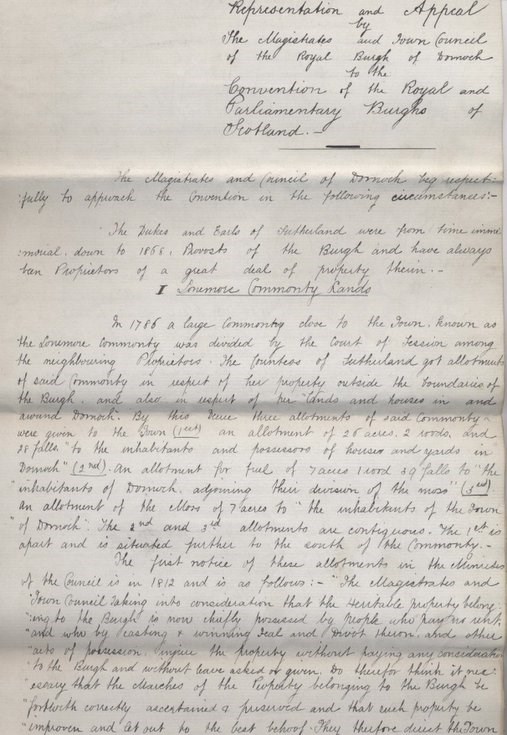 Representation and Appeal
by
The Magistrates and Town Council
of the Royal Burgh of Dornoch
to the
Convention of the Royal and
Parliamentary Burghs of
Scotland. —
The Magistrates and Council of Dornoch beg respect-
fully to approach the Convention in the following circumstances:—
The Dukes and Earls of Sutherland were from time imme-
morial, down to 1868, Provosts of the Burgh and have always
been Proprietors of a great deal of property therein. —
I Lonemore Commonty Lands
In 1786 a large Commonty close to the Town, known as
the Lonemore Commonty was divided by the Court of Session among
the neighbouring Proprietors. The Countess of Sutherland got allotments
of said Commonty in respect of her property outside the boundaries of
the Burgh, and also in respect of her "lands and houses in and
around Dornoch. By this Decree three allotments of said Commonty
were given to the Town (1st) an allotment of 26 acres, 2 roods, and
28 falls "to the inhabitants and possessors of houses and yards in
Dornoch" (2nd). An allotment for fuel of 7 acres 1 rood 39 falls to "the
"inhabitants of Dornoch, adjoining their division of the moss" (3rd)
an allotment of the Moss of 7 acres to "the inhabitants of the Town
"of Dornoch". The 2nd and 3rd allotments are contiguous. The 1st is
apart and is situated further to the south of the Commonty. —
The first notice of these allotments in the Minutes
of the Council is in 1812 and is as follows:— "The Magistrates and
"Town Council taking into consideration that the Heritable property belong
"ing to the Burgh is now chiefly possessed by people who pay no rent,
"and who by casting & winning Feal and Divot thereon, and other
"acts of possession, injure the property without paying any consideration
"to the Burgh and without leave asked or given, Do therefor think it nec-
"essary that the Marches of the Property belonging to the Burgh be
"forthwith correctly ascertained & preserved and that such property be
"improven and let out to the best behoof. They therefore direct the Town